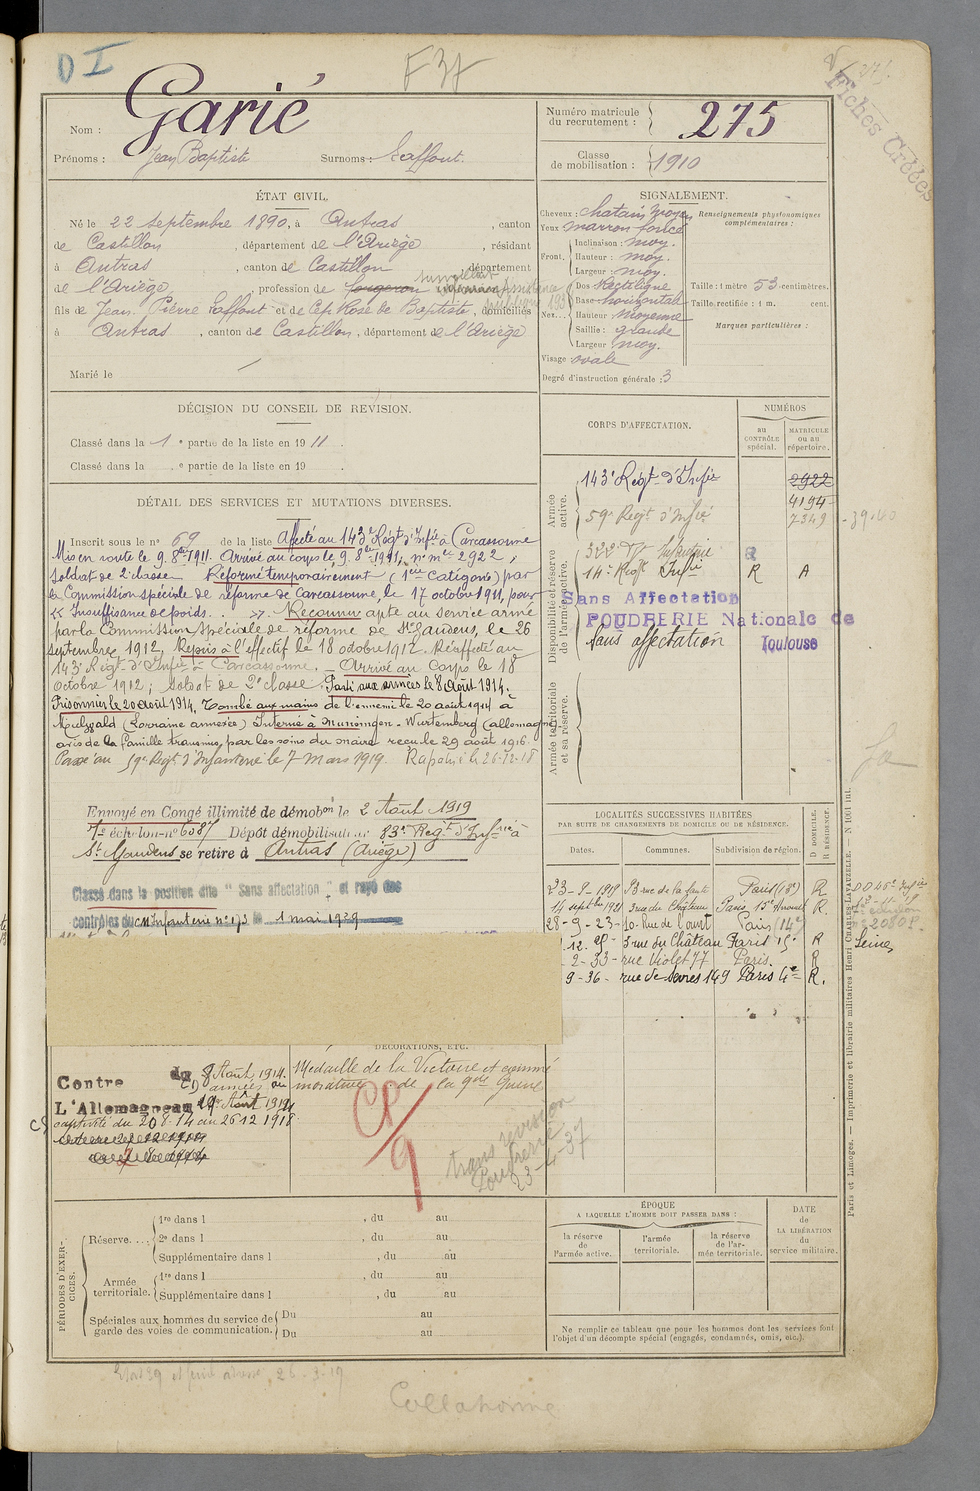 D I
F 37
Fiches Créées
Nom : Garié
Prénoms : Jean Baptiste Surnoms : Laffont.
Numéro matricule du recrutement : 275
Classe de mobilisation : 1910
ÉTAT CIVIL.
Né le 22 septembre 1890, à Antras, canton
de Castillon, département de l'Ariège, résidant
à Antras, canton de Castillon, département
de l'Ariège, profession de forgeron surveillant
fils de Jean Pierre Laffont et de Cep Rose de Baptiste, domiciliés
à Antras, canton de Castillon, département de l'Ariège
Marié le
SIGNALEMENT.
Cheveux : chatain moyen
Yeux marron foncé
Front. Inclinaison : moy.
Hauteur : moy.
Largeur : moy.
Nez... Dos Rectiligne
Base horizontale
Hauteur : moyenne
Saillie : grande
Largeur : moy.
Visage : ovale
Degré d'instruction générale : 3
Renseignements physionomiques complémentaires :
Taille : 1 mètre 53 centimètres.
Taille rectifiée : 1 m. cent.
Marques particulières :
DÉCISION DU CONSEIL DE RÉVISION.
Classé dans la 1 e partie de la liste en 1911.
Classé dans la e partie de la liste en 19 .
DÉTAIL DES SERVICES ET MUTATIONS DIVERSES.
Inscrit sous le n° 69 de la liste Affecté au 143e Régt d'Infie à Carcassonne
Mis en route le 9. 8bre 1911. Arrivé au corps le 9. 8bre 1911, n° mle 2922,
soldat de 2e classe Réformé temporairement (1ere Catigorie) par
la Commission spéciale de réforme de Carcassonne, le 17 octobre 1911, pour
« Insuffisance de poids. . ». Reconnu apte au service armé
par la Commission spéciale de réforme de St Gaudens, le 26
septembre 1912, Repris à l'effectif le 18 octobre 1912. Réaffecté au
143e Régt d'Infie à Carcassonne. Arrivé au Corps le 18
octobre 1912 ; soldat de 2e classe. Parti aux armées le 8 Août 1914.
Prisonnier le 20 août 1914, Tombé aux mains de l'ennemi le 20 août 1914 à
(Lorraine annexée) Interné à Munsingen - Wurtemberg (allemagne)
avis de la famille transmis, par les soins du maire reçu le 29 août 1916.
Passé au 59e Régt d'Infanterie le 7 Mars 1919. Rapatrié le 26-12-18
Envoyé en Congé illimité de démobon le 2 Août 1919
échelon n° 6087 Dépôt démobilisateur 83e Régt d'Infrie à
St Gaudens se retire à Antras (Ariège)
Classé dans la position dite "Sans affectation" et rayé des
contrôles du cm Infanterie n° 173 le 1 mai 1929
CORPS D'AFFECTATION.
NUMÉROS
au CONTRÔLE spécial.
MATRICULE ou au répertoire.
Armée active.
143e Régt d'Infie 2922
4194
59e Régt d'Infie 7349
Disponibilité et réserve de l'armée active.
322e Rt Infanterie R
14e Régt Infie R A
Sans Affectation
POUDRERIE Nationale de Toulouse
Sans affectation
Armée territoriale et sa réserve.
LOCALITÉS SUCCESSIVES HABITÉES
PAR SUITE DE CHANGEMENTS DE DOMICILE OU DE RÉSIDENCE.
Dates. Communes. Subdivision de région. D DOMICILE. R RÉSIDENCE.
23-9-1919 83 rue de la Santé Paris (13e) R
14 septbre 1921 3 rue du Château Paris 15e Arrondt R.
28-9-23 10 Rue de l'ouest Paris (14e)
.12.25 3 rue du Château Paris 15e R Seine
2-33 rue Violet 77 Paris. R
9-36 rue de Sevres 149 Paris R.
DÉCORATIONS, ETC.
Contre L'Allemagne
du 8 Août 1914
captivité du 20 8. 14 au 26 12 1918
Médaille de la Victoire et commé
morative de la gde Guerre
CP/9
trans révision
Poudrerie
23-4-37
PÉRIODES D'EXERCICES.
Réserve.... 1re dans l , du au
2e dans l , du au
Supplémentaire dans l , du au
Armée territoriale. 1re dans l , du au
Supplémentaire dans l , du au
Spéciales aux hommes du service de garde des voies de communication. Du au
Du au
ÉPOQUE
A LAQUELLE L'HOMME DOIT PASSER DANS :
la réserve de l'armée active.
l'armée territoriale.
la réserve de l'armée territoriale.
DATE de LA LIBÉRATION du service militaire.
Ne remplir ce tableau que pour les hommes dont les services font
l'objet d'un décompte spécial (engagés, condamnés, omis, etc.).
Paris et Limoges. — Imprimerie et librairie militaires Henri CHARLES-LAVAUZELLE. — N 1001 int.